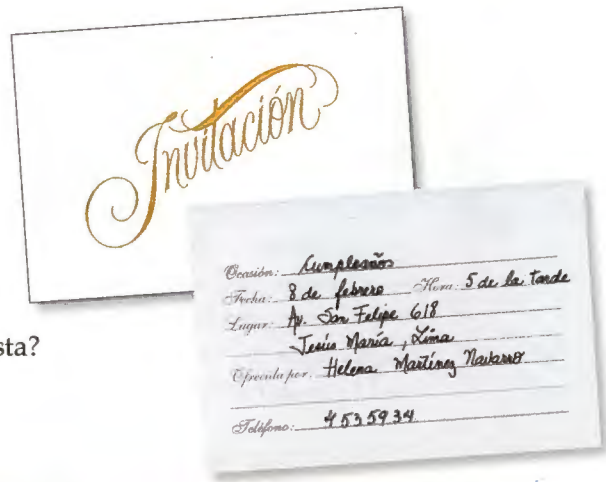 Invitación
Ocasión: Cumpleaños
Fecha: 8 de febrero Hora: 5 de la tarde
Lugar: Av. San Felipe 618
Jesús María, Lima
Ofrecida por: Helena Martínez Navarro
Teléfono: 4535934
sta?